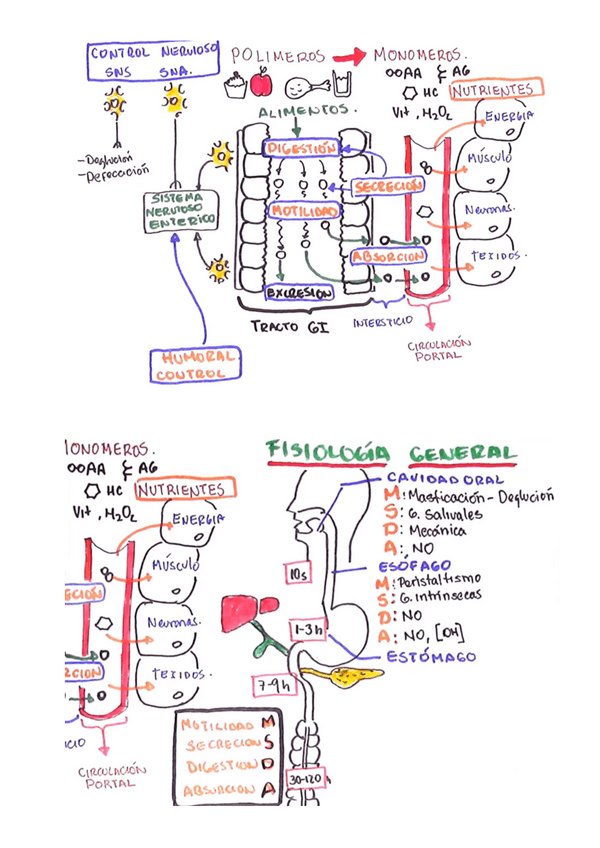 CONTROL NERVIOSO
SNS SNA.
POLIMEROS → MONOMEROS.
OOAA & AG
HC NUTRIENTES
Vit, H2O2
ALIMENTOS.
ENERGIA
DIGESTIÓN
MÚSCULO
- Deglución
- Defecación
SECRECIÓN
SISTEMA
NERVIOSO
ENTERICO
MOTILIDAD
Neuronas.
ABSORCION
TEXIDOS.
EXCRESION
TRACTO GI
INTERSTICIO
CIRCULACIÓN
PORTAL
HUMORAL
CONTROL
IONOMEROS.
OOAA & AG
HC NUTRIENTES
Vit, H2O2
ENERGIA
MÚSCULO
ECIÓN
Neuronas.
RCION
TEXIDOS.
CIO
CIRCULACIÓN
PORTAL
FISIOLOGÍA GENERAL
CAVIDAD ORAL
M: Masticación - Deglución
S: G. Salivales
D: Mecánica
A:, NO
ESÓFAGO
M: Peristaltismo
S: G. intrínsecas
D: NO
A: NO, [OH]
ESTÓMAGO
10s
1-3h
7-9h
30-120 h
MOTILIDAD M
SECRECION S
DIGESTION D
ABSORCION A